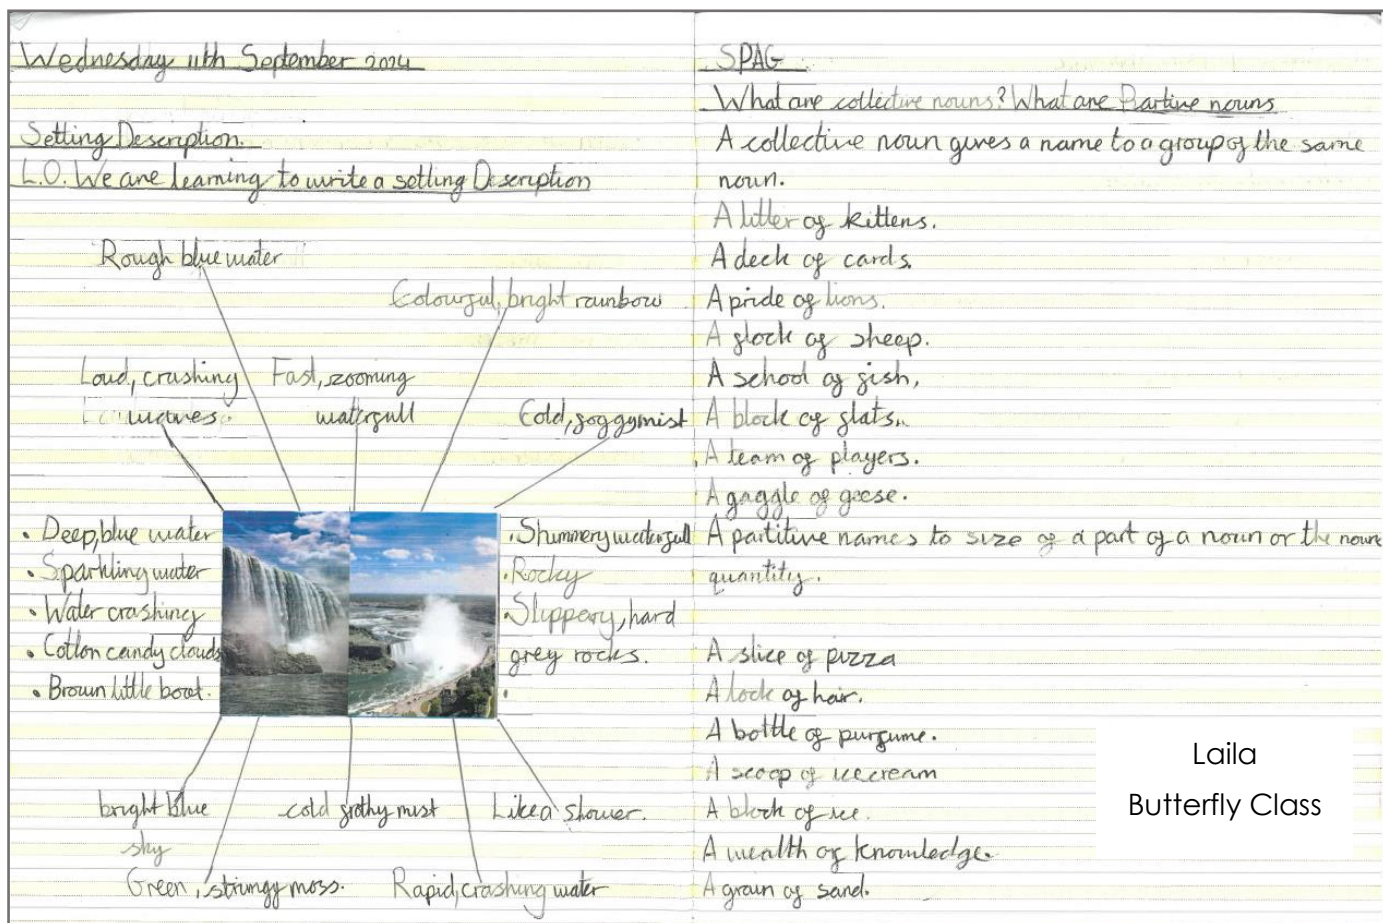 Wednesday 11th September 2024
Setting Description.
L.O. We are learning to write a setting Description
Rough blue water
Colourful, bright rainbow
Loud, crashing
waves.
Fast, zooming
waterfall
Cold, foggy mist
• Deep, blue water
• Sparkling water
• Water crashing
• Cotton candy clouds
• Brown little boat.
• Shimmery waterfall
• Rocky
• Slippery, hard
grey rocks.
•
bright blue
sky
cold frothy mist
Like a shower.
Green, stringy moss.
Rapid, crashing water
SPAG
What are collective nouns? What are Partive nouns
A collective noun gives a name to a group of the same
noun.
A litter of kittens.
A deck of cards.
A pride of lions.
A flock of sheep.
A school of fish,
A block of flats.
A team of players.
A gaggle of geese.
A partitive names to size of a part of a noun or the nouns
quantity.
A slice of pizza
A lock of hair.
A bottle of purfume.
A scoop of icecream
A block of ice.
A wealth of knowledge.
A grain of sand.
Laila
Butterfly Class